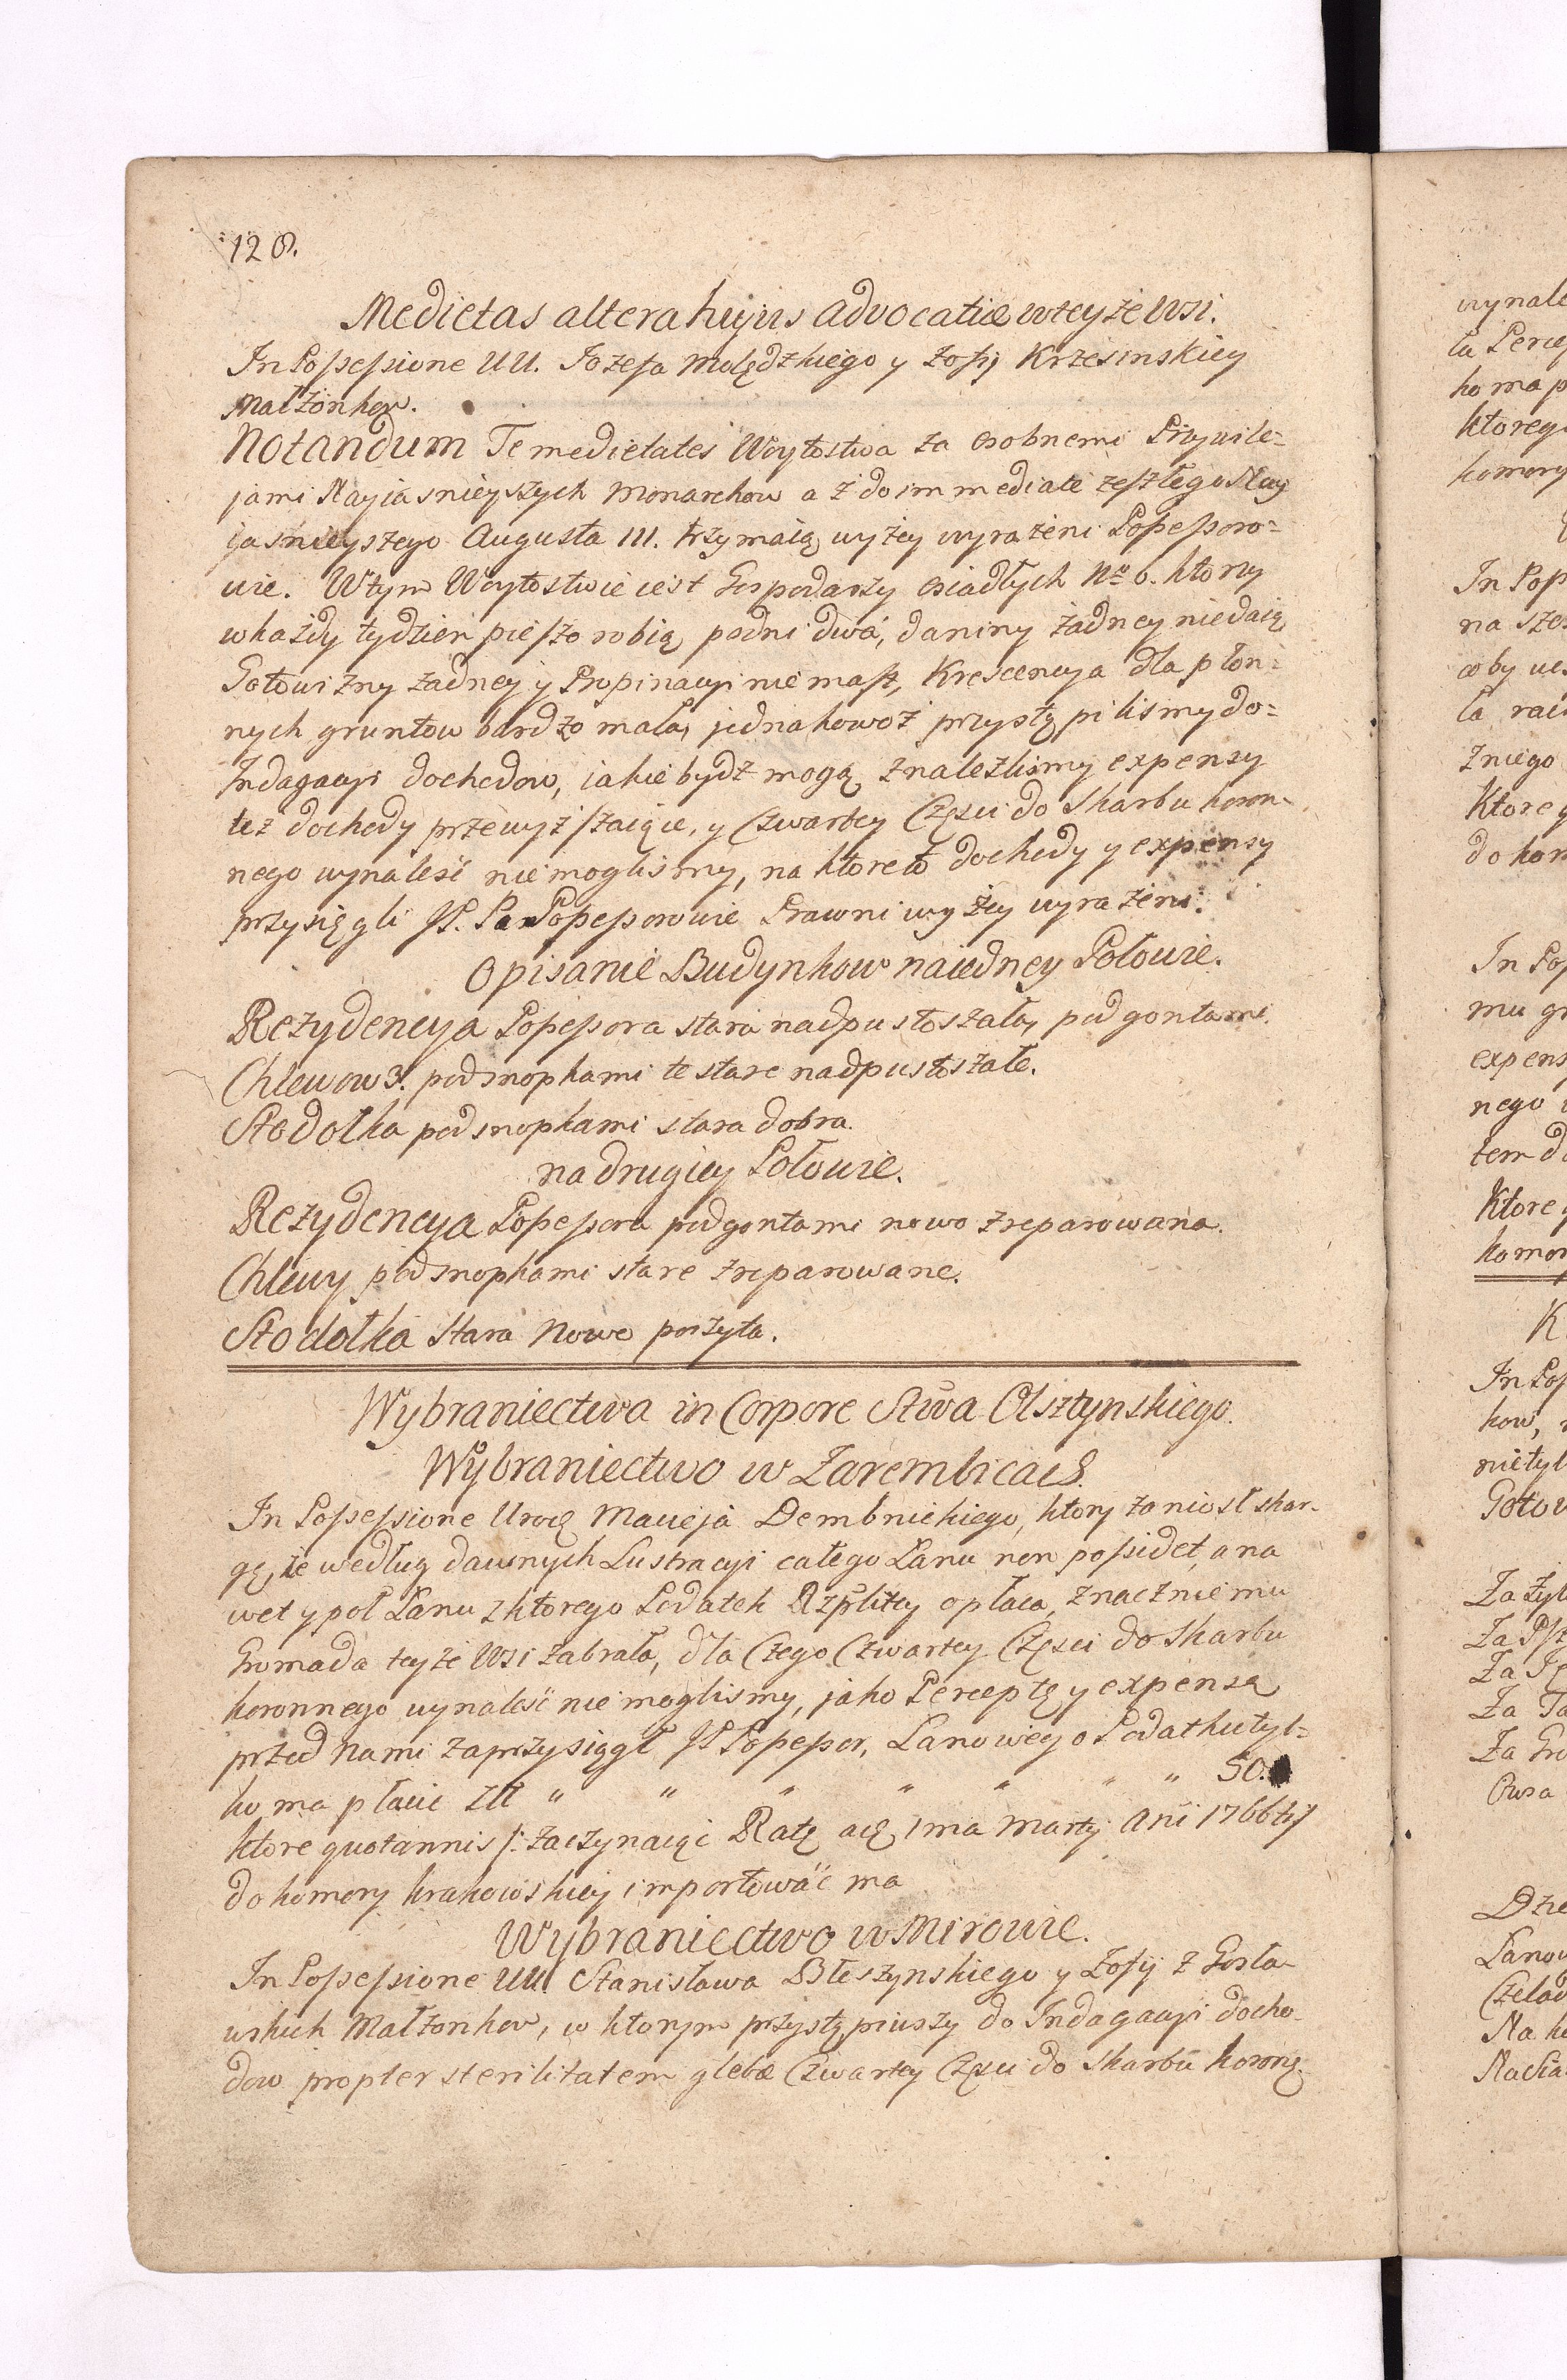 128.
Medietas altera hujus advocatiæ wteyże wsi.
In Possessione UU. Jozefa Molędzkiego y Zofij Krzesinskiey
Małżonkow.
Notandum Te medietates Woytostwa za osobnemi Przywile=
jami Nayiasnieyszych Monarchow a z do immediate zeszłego Nay
jasnieyszego Augusta III. trzymaią wyżey wyrażeni Possessoro=
wie. Wtym Woytostwie iest Gospodarzy osiadłych No 6. ktorzy
wkażdy tydzien pieszo robią podni dwa, daniny żadney niedaią
Gotowizny żadney y Propinacyi niemasz, Krescencya dla płon=
nych gruntow bardzo mała, jednakowoż przystąpilismy do=
Indagacyi dochodow, iakie bydz mogą znalezlismy expensy
też dochody przewyższaiące, y Czwartey Częsci do Skarbu koron-
nego wynalesć niemoglismy, na ktoreto dochody y expensy
przysięgli JP. Pan Possessorowie Prawni wyżey wyrażeni.
Opisanie Budynkow naiedney Połowie.
Rezydencya Possessora stara nadpustoszała, pod gontami.
Chlewow 3. pod snopkami te stare nadpustoszałe.
Stodołka pod snopkami stara dobra.
na drugiey Połowie.
Rezydencya Possessora pod gontami nowo zreparowana.
Chlewy pod snopkami stare zreparowane.
Stodołka stara nowo poszyta.
Wybraniectwa in Corpore Stwa Olsztynskiego.
Wybraniectwo w Zarembicach.
In Possessione Uroę Macieja Dembnickiego, ktory zaniosł skar-
gę, że według dawnych Lustracyi całego Łanu non possidet, a na
wet y pol Łanu z ktorego Podatek Rzplitey opłaca, znacznie mu
Gromada teyże Wsi zabrała, dla Czego Czwartey Częsci do Skarbu
koronnego wynalesć niemoglismy, jako Perceptę y expensą
przed nami zaprzysiągł JP Possessor, Łanowego Podatku tyl=
ko ma płacic Złł " " " " " " " 50.
ktore quotannis /: zaczynaiąc Ratę aię 1ma Martij Ani 1766 :/
do komory krakowskiey importować ma
Wybraniectwo w Mirowie.
In Possessione UU. Stanisława Błeszynskiego y Zofij z Gosła-
wskich Małżonkow, w ktorym przystąpiwszy do Indagacyi docho-
dow propter sterilitatem glebæ Czwartey Częsci do Skarbu koronę